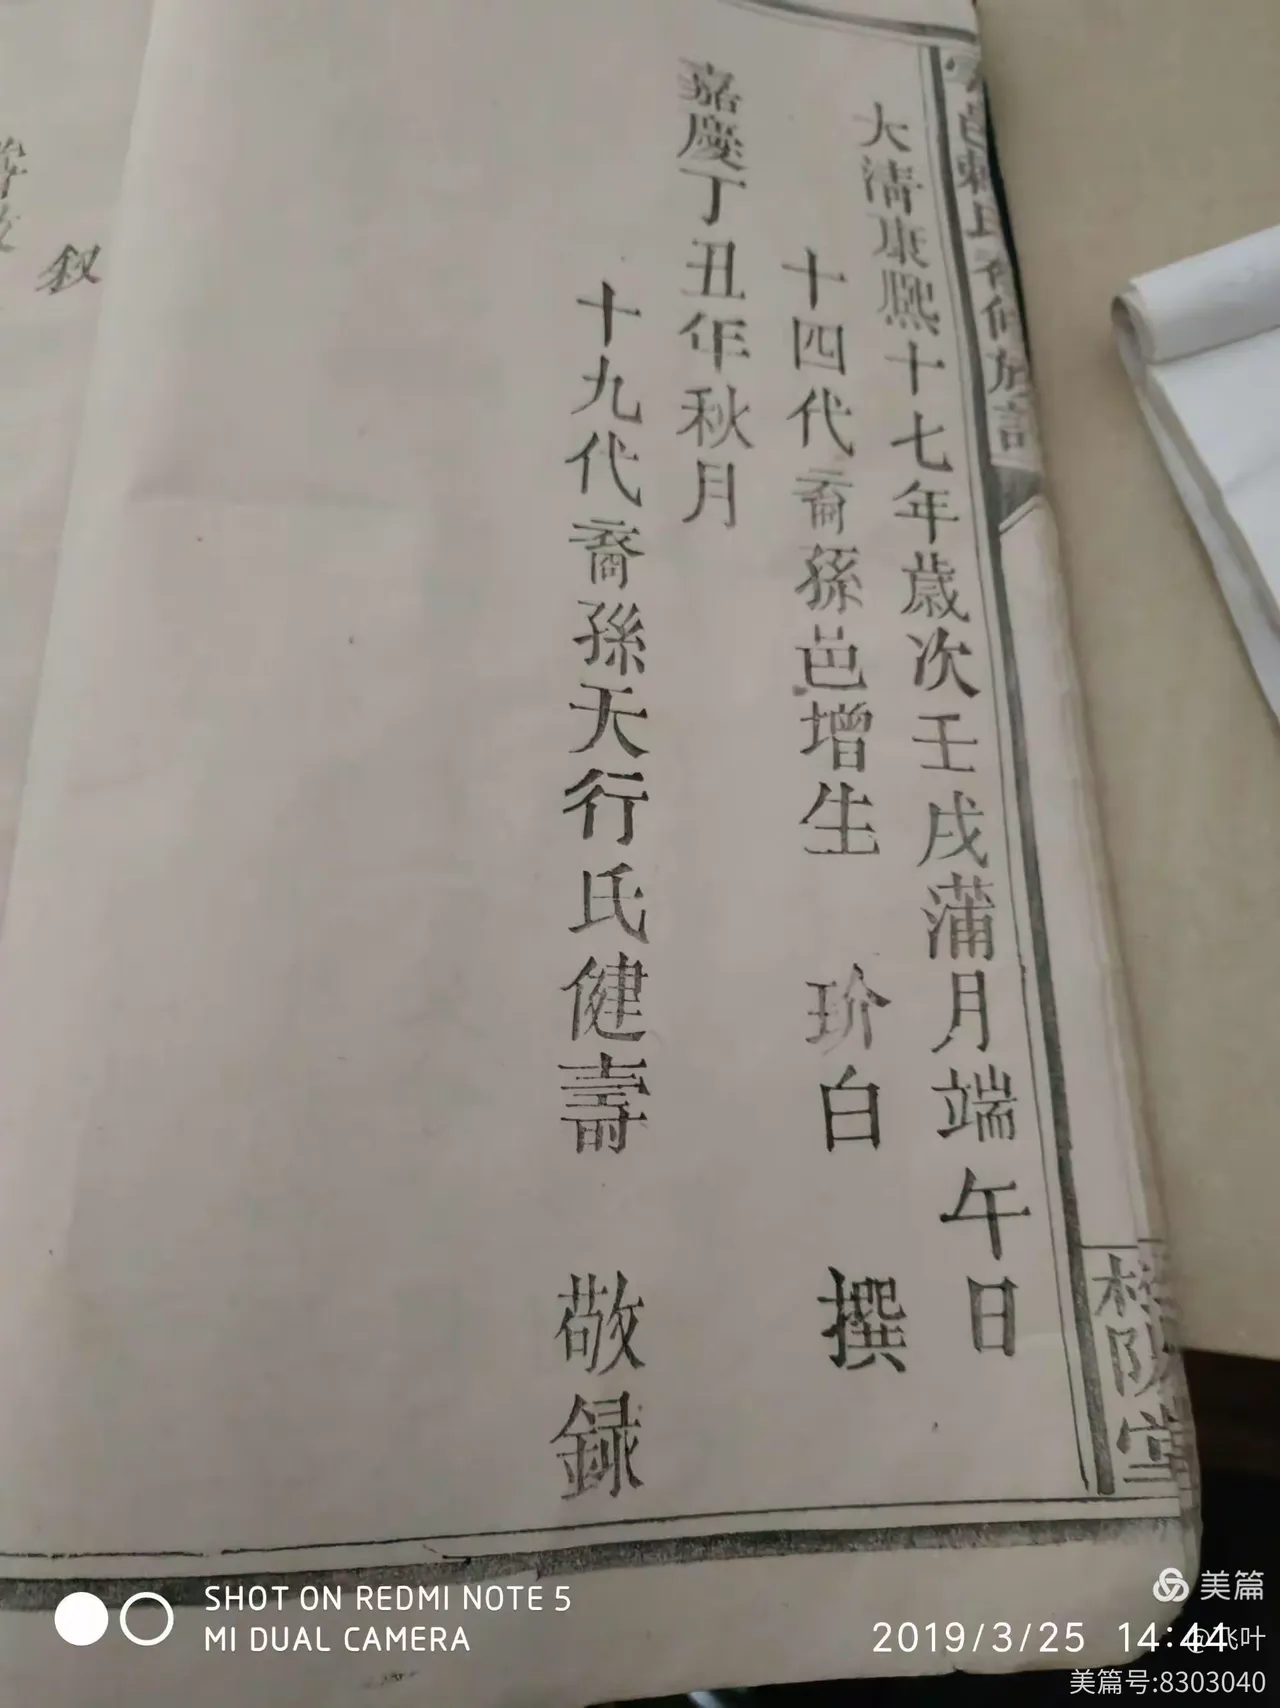 邑賴氏脩族譜
堂
大清康熙十七年歲次壬戌蒲月端午日
十四代裔孫邑增生 玠白 撰
嘉慶丁丑年秋月
十九代裔孫天行氏健壽 敬錄
叙
SHOT ON REDMI NOTE 5
MI DUAL CAMERA
美篇
2019/3/25 14:44
@飞叶
美篇号:8303040